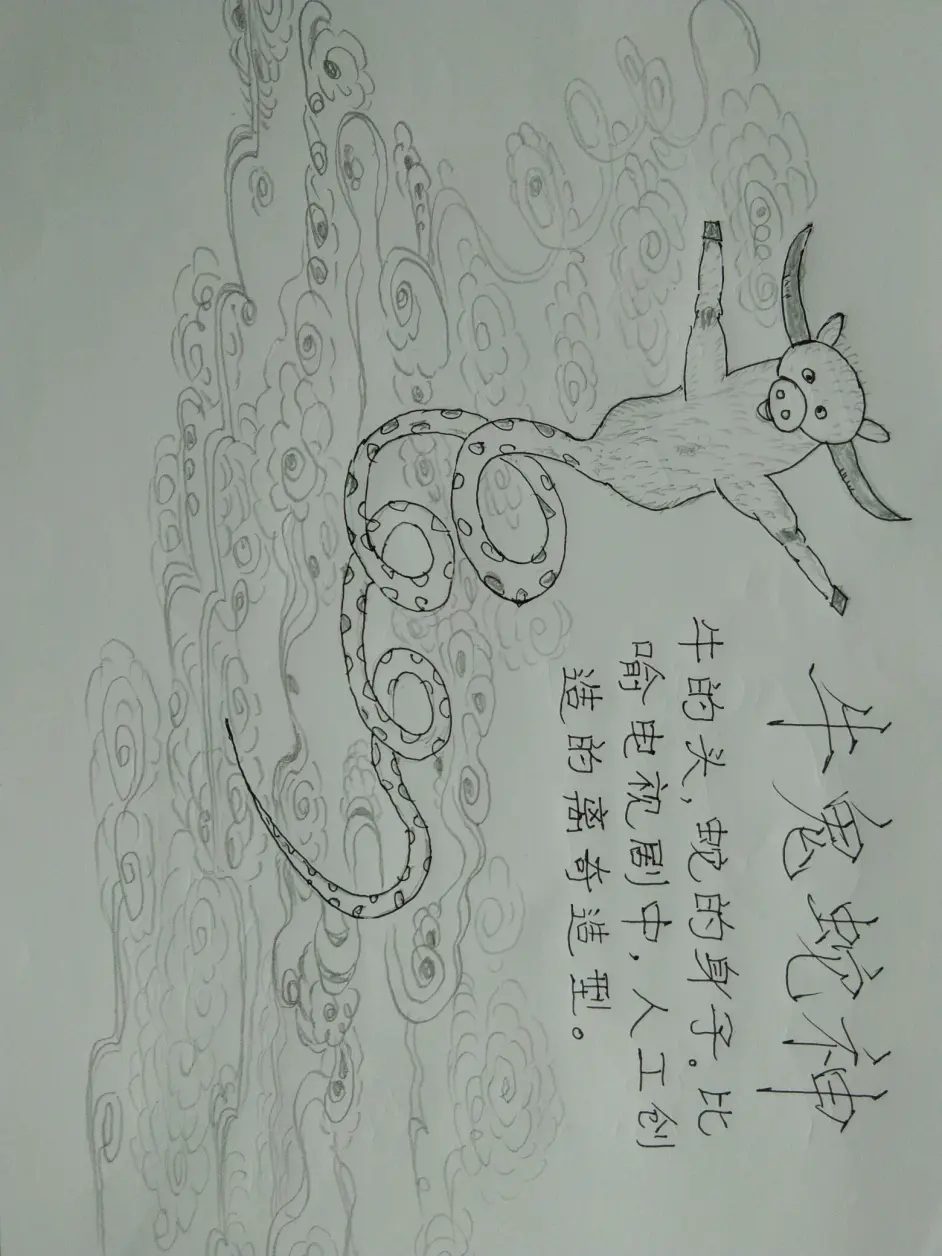 牛鬼蛇神
牛的头，蛇的身子。比
喻电视剧中，人工创
造的离奇造型。